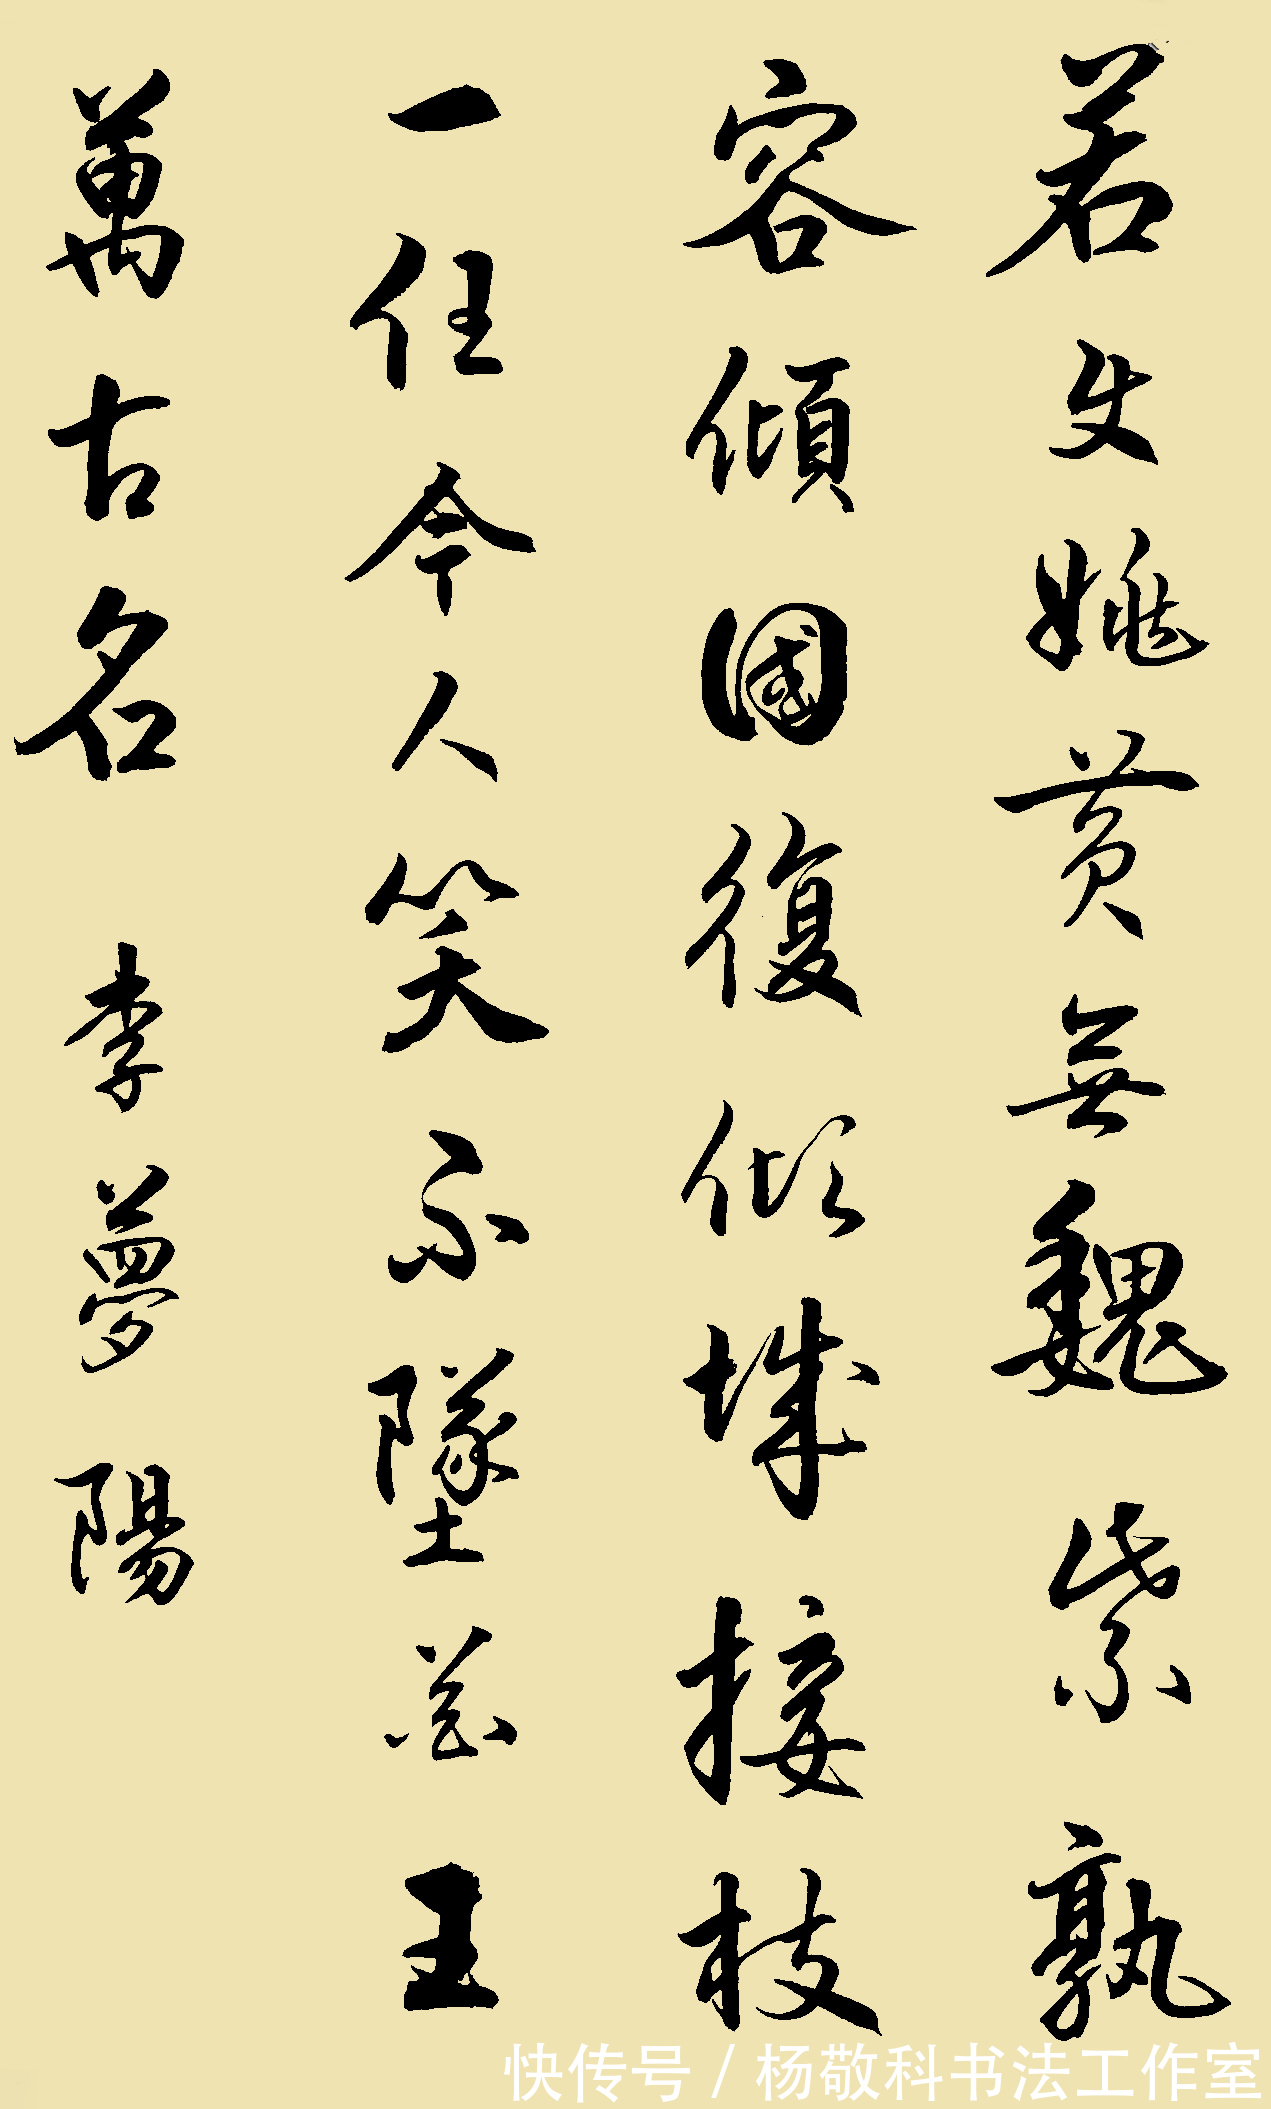 若失姚黄無魏紫孰
容傾國復傾城接枝
一任今人笑不墜花王
萬古名 李夢陽
快传号 / 杨敬科书法工作室